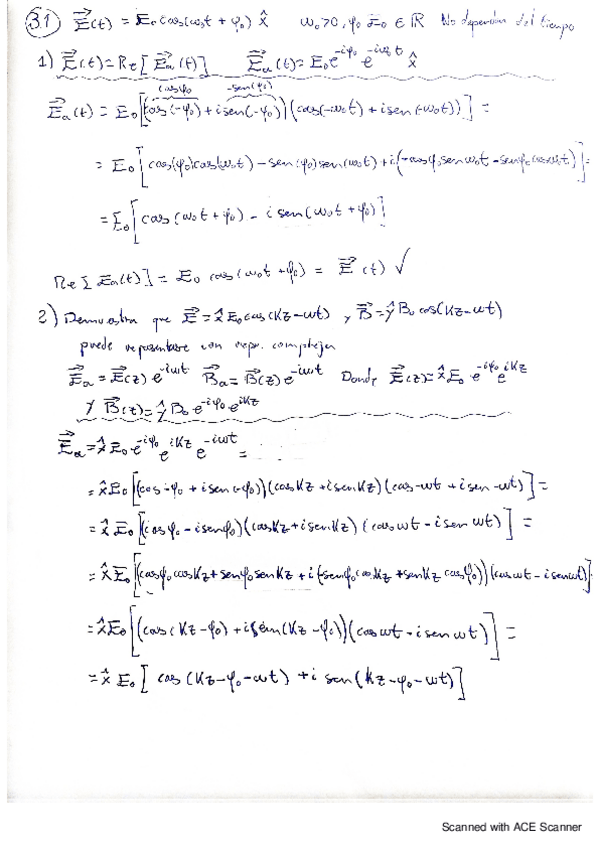 3.1) E⃗(t) = E₀ cos(ω₀t + φ₀) x̂   ω₀>0, φ₀ E₀ ∈ ℝ No dependen del tiempo
1) E⃗(t) = Re[E⃗a(t)]   E⃗a(t) = E₀e^{-iφ₀} e^{-iω₀t} x̂
cosφ₀   -sen(φ₀)
E⃗a(t) = E₀[(cos(-φ₀) + i sen(-φ₀))(cos(-ω₀t) + i sen(-ω₀t))] =
= E₀[cos(φ₀)cos(ω₀t) - sen(φ₀)sen(ω₀t) + i(-cosφ₀ senω₀t - senφ₀ cosω₀t)] =
= E₀[cos(ω₀t + φ₀) - i sen(ω₀t + φ₀)]
Re[Ea(t)] = E₀ cos(ω₀t + φ₀) = E⃗(t) ✓
2) Demuestra que E⃗ = x̂ E₀ cos(Kz-ωt) y B⃗ = ŷ B₀ cos(Kz-ωt)
puede representarse con repr. compleja
E⃗a = E⃗(z) e^{-iωt}   B⃗a = B⃗(z) e^{-iωt}   Donde E⃗(z) = x̂ E₀ e^{-iφ₀} e^{iKz}
y B⃗(z) = ŷ B₀ e^{-iφ₀} e^{iKz}
E⃗a = x̂ E₀ e^{-iφ₀} e^{iKz} e^{-iωt} =
= x̂ E₀[(cos-φ₀ + i sen(-φ₀))(cosKz + i senKz)(cos-ωt + i sen-ωt)] =
= x̂ E₀[(cosφ₀ - i senφ₀)(cosKz + i senKz)(cosωt - i senωt)] =
= x̂ E₀[(cosφ₀ cosKz + senφ₀ senKz + i(-senφ₀ cosKz + senKz cosφ₀))(cosωt - i senωt)]
= x̂ E₀[(cos(Kz-φ₀) + i sen(Kz-φ₀))(cosωt - i senωt)] =
= x̂ E₀[cos(Kz-φ₀-ωt) + i sen(Kz-φ₀-ωt)]
Scanned with ACE Scanner